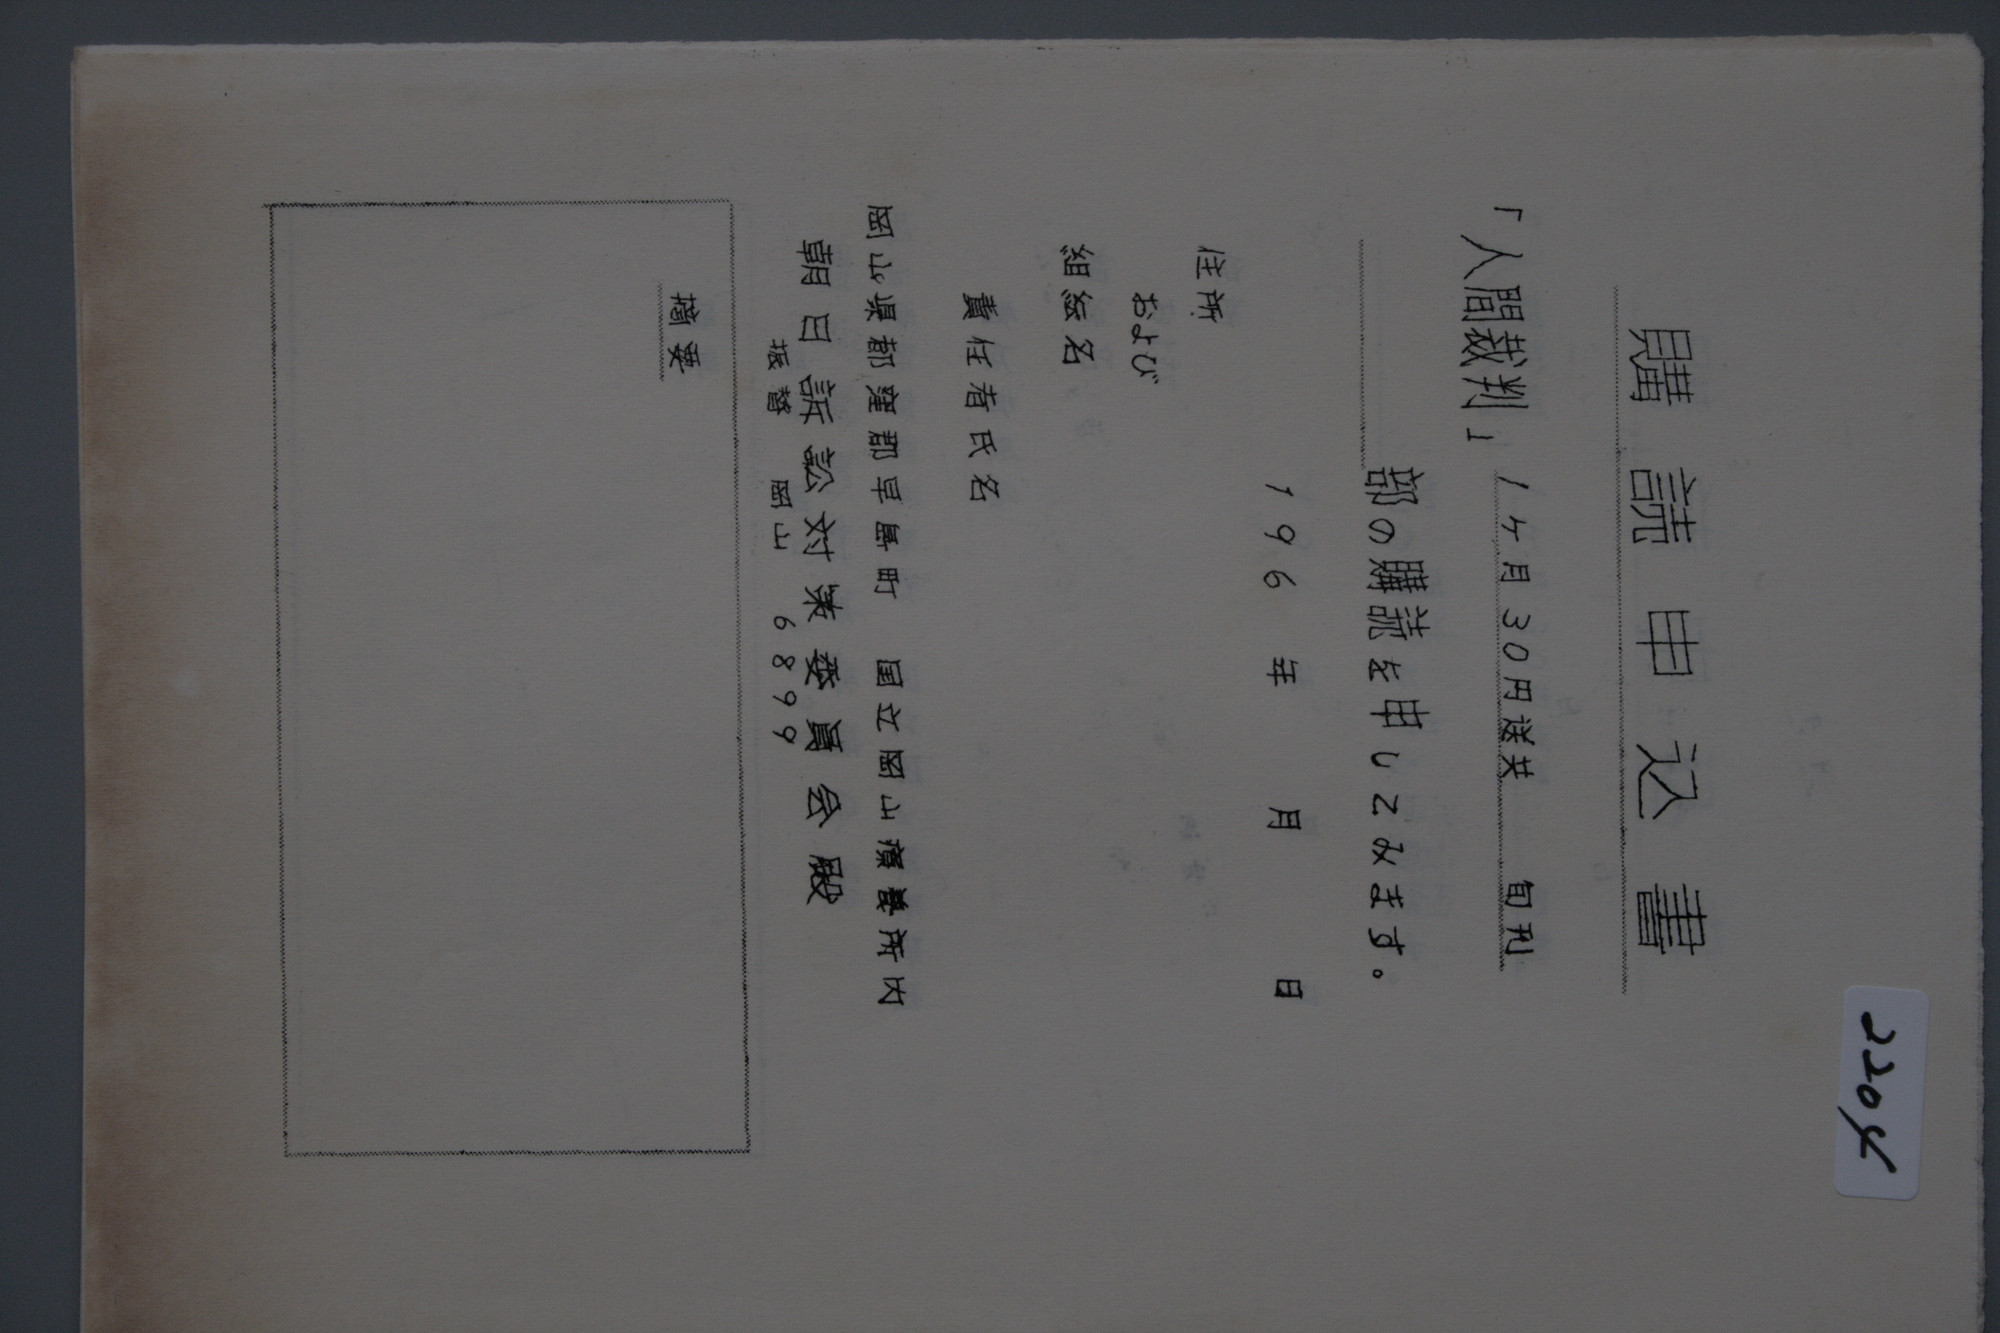 2204
購読申込書
「人間裁判」 1ケ月30円送共 旬刊
部の購読を申しこみます。
196 年 月 日
住所
および
組織名
責任者氏名
岡山県都窪郡早島町 国立岡山療養所内
朝日訴訟対策委員会殿
振替 岡山 6899
摘要